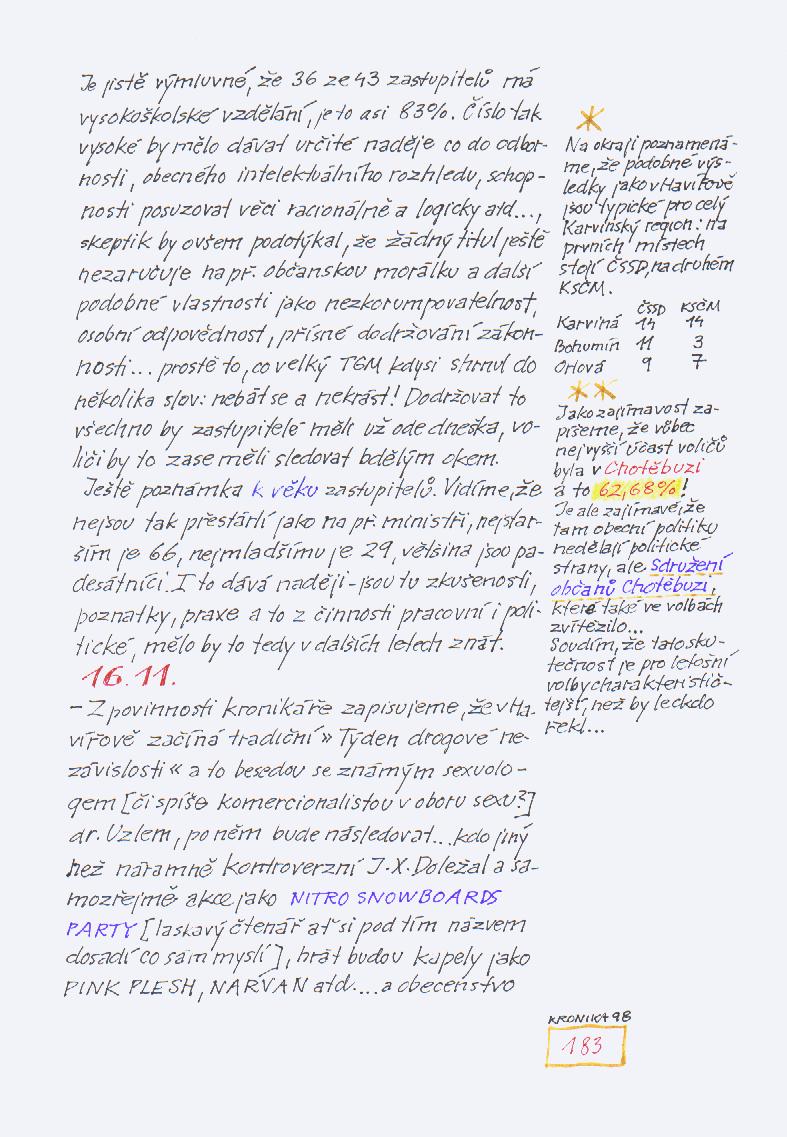 Je jistě výmluvné, že 36 ze 43 zastupitelů má
vysokoškolské vzdělání, je to asi 83%. Číslo tak
vysoké by mělo dávat určité naděje co do odbor-
nosti, obecného intelektuálního rozhledu, schop-
nosti posuzovat věci racionálně a logicky atd...,
skeptik by ovšem podotýkal, že žádný titul ještě
nezaručuje např. občanskou morálku a další
podobné vlastnosti jako nezkorumpovatelnost,
osobní odpovědnost, přísné dodržování zákon-
nosti... prostě to, co velký TGM kdysi shrnul do
několika slov: nebát se a nekrást! Dodržovat to
všechno by zastupitelé měli už ode dneška, vo-
liči by to zase měli sledovat bdělým okem.
Ještě poznámka k věku zastupitelů. Vidíme, že
nejsou tak přestárlí jako např. ministři, nejstar-
ším je 66, nejmladšímu je 29, většina jsou pa-
desátníci. I to dává naději - jsou tu zkušenosti,
poznatky, praxe a to z činnosti pracovní i poli-
tické, mělo by to tedy v dalších letech znát.
16.11.
– Z povinnosti kronikáře zapisujeme, že v Ha-
vířově začíná tradiční » Týden drogové ne-
závislosti « a to besedou se známým sexuolo-
gem [či spíše komercionalistou v oboru sexu?]
dr. Uzlem, po něm bude následovat...kdo jiný
než náramně kontroverzní J.X.Doležal a sa-
mozřejmě akce jako NITRO SNOWBOARDS
PARTY [laskavý čtenář ať si pod tím názvem
dosadí co sám myslí], hrát budou kapely jako
PINK PLESH, NARVAN atd....a obecenstvo
*
Na okraji poznamená-
me, že podobné výs-
ledky jako v Havířově
jsou typické pro celý
Karvinský region: na
prvních místech
stojí ČSSD, na druhém
KSČM.
ČSSD KSČM
Karviná 14 14
Bohumín 11 3
Orlová 9 7
**
Jako zajímavost za-
píšeme, že vůbec
nejvyšší účast voličů
byla v Chotěbuzi
a to 62,68%!
Je ale zajímavé, že
tam obecní politiku
nedělají politické
strany, ale Sdružení
občanů Chotěbuzi,
které také ve volbách
zvítězilo...
Soudím, že tato sku-
tečnost je pro letošní
volby charakteristič-
tejší, než by leckdo
řekl...
KRONIKA 98
183